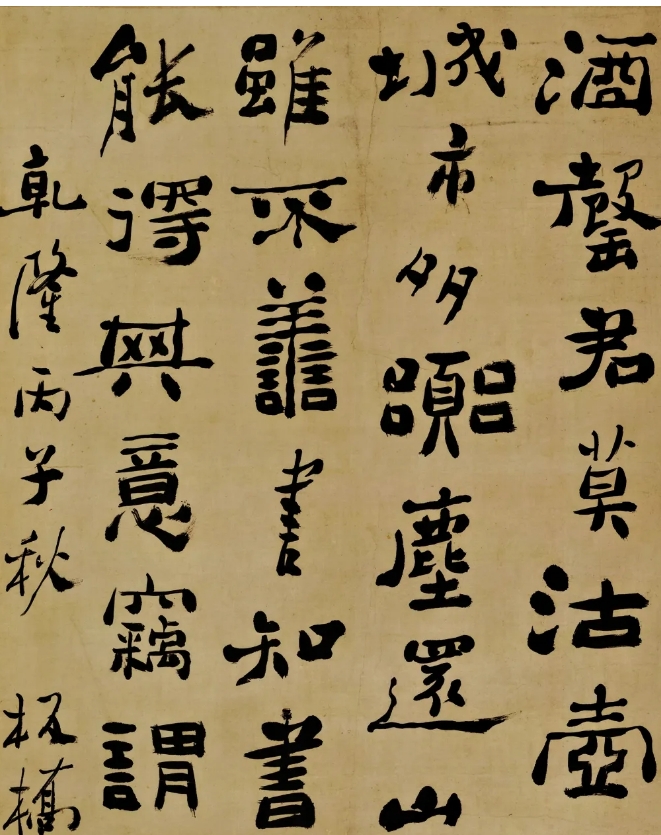 酒罄君莫沽壺
城市多囂塵還山
雖不善書知書
能得其意竊謂
乾隆丙子秋 板橋